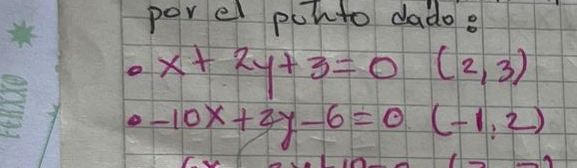 por el punto dado:
• x + 2y + 3 = 0 (2, 3)
• -10x + 3y - 6 = 0 (-1, 2)